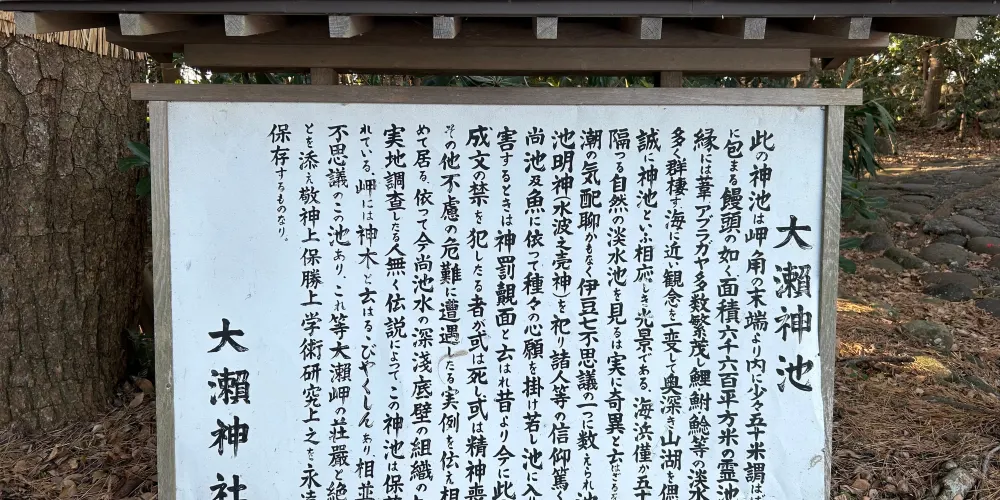 大瀬神池
此の神池は岬角の末端より内に少々五十米謂は
に包まる饅頭の如く面積六千六百平方米の霊池
縁には葦アブラガヤ多数繁茂し鯉鮒鯰等の淡水
多く群棲す海に近い観念を一変して奥深き山湖を偲
誠に神池といふ相応しき光景である。海浜僅か五十
隔つる自然の淡水池を見るは実に奇異と云はざらな
潮の気配聊かもなく伊豆七不思議の一つに数えられ池
池明神(水波之売神)を祀り諸人等の信仰篤く
尚池及魚に依って種々の心願を掛け若し池に入
害するときは神罰覿面と云はれ昔より今に此
成文の禁を犯したる者が或は死し或は精神喪
その他不慮の危難に遭遇したる実例を伝え相
めて居る。依って今尚池水の深淺底壁の組織の
実地調査したる人無く伝説によってこの神池は保
れている。岬には神木と云はるゝびやくしんあり相並
不思議のこの池あり、これ等大瀬岬の荘厳と絶
とを添え敬神上保勝上学術研究上之を永遠
保存するものなり。
大瀬神社